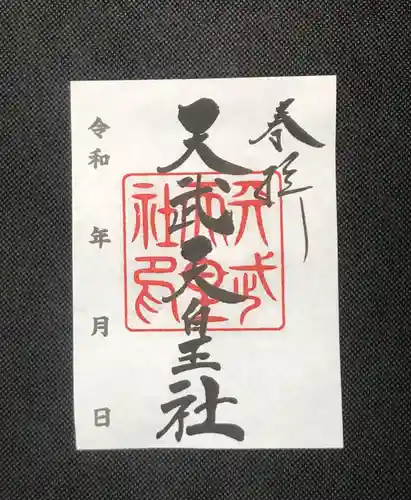 奉拝
天武天皇社
天武天皇社印
令和 年 月 日